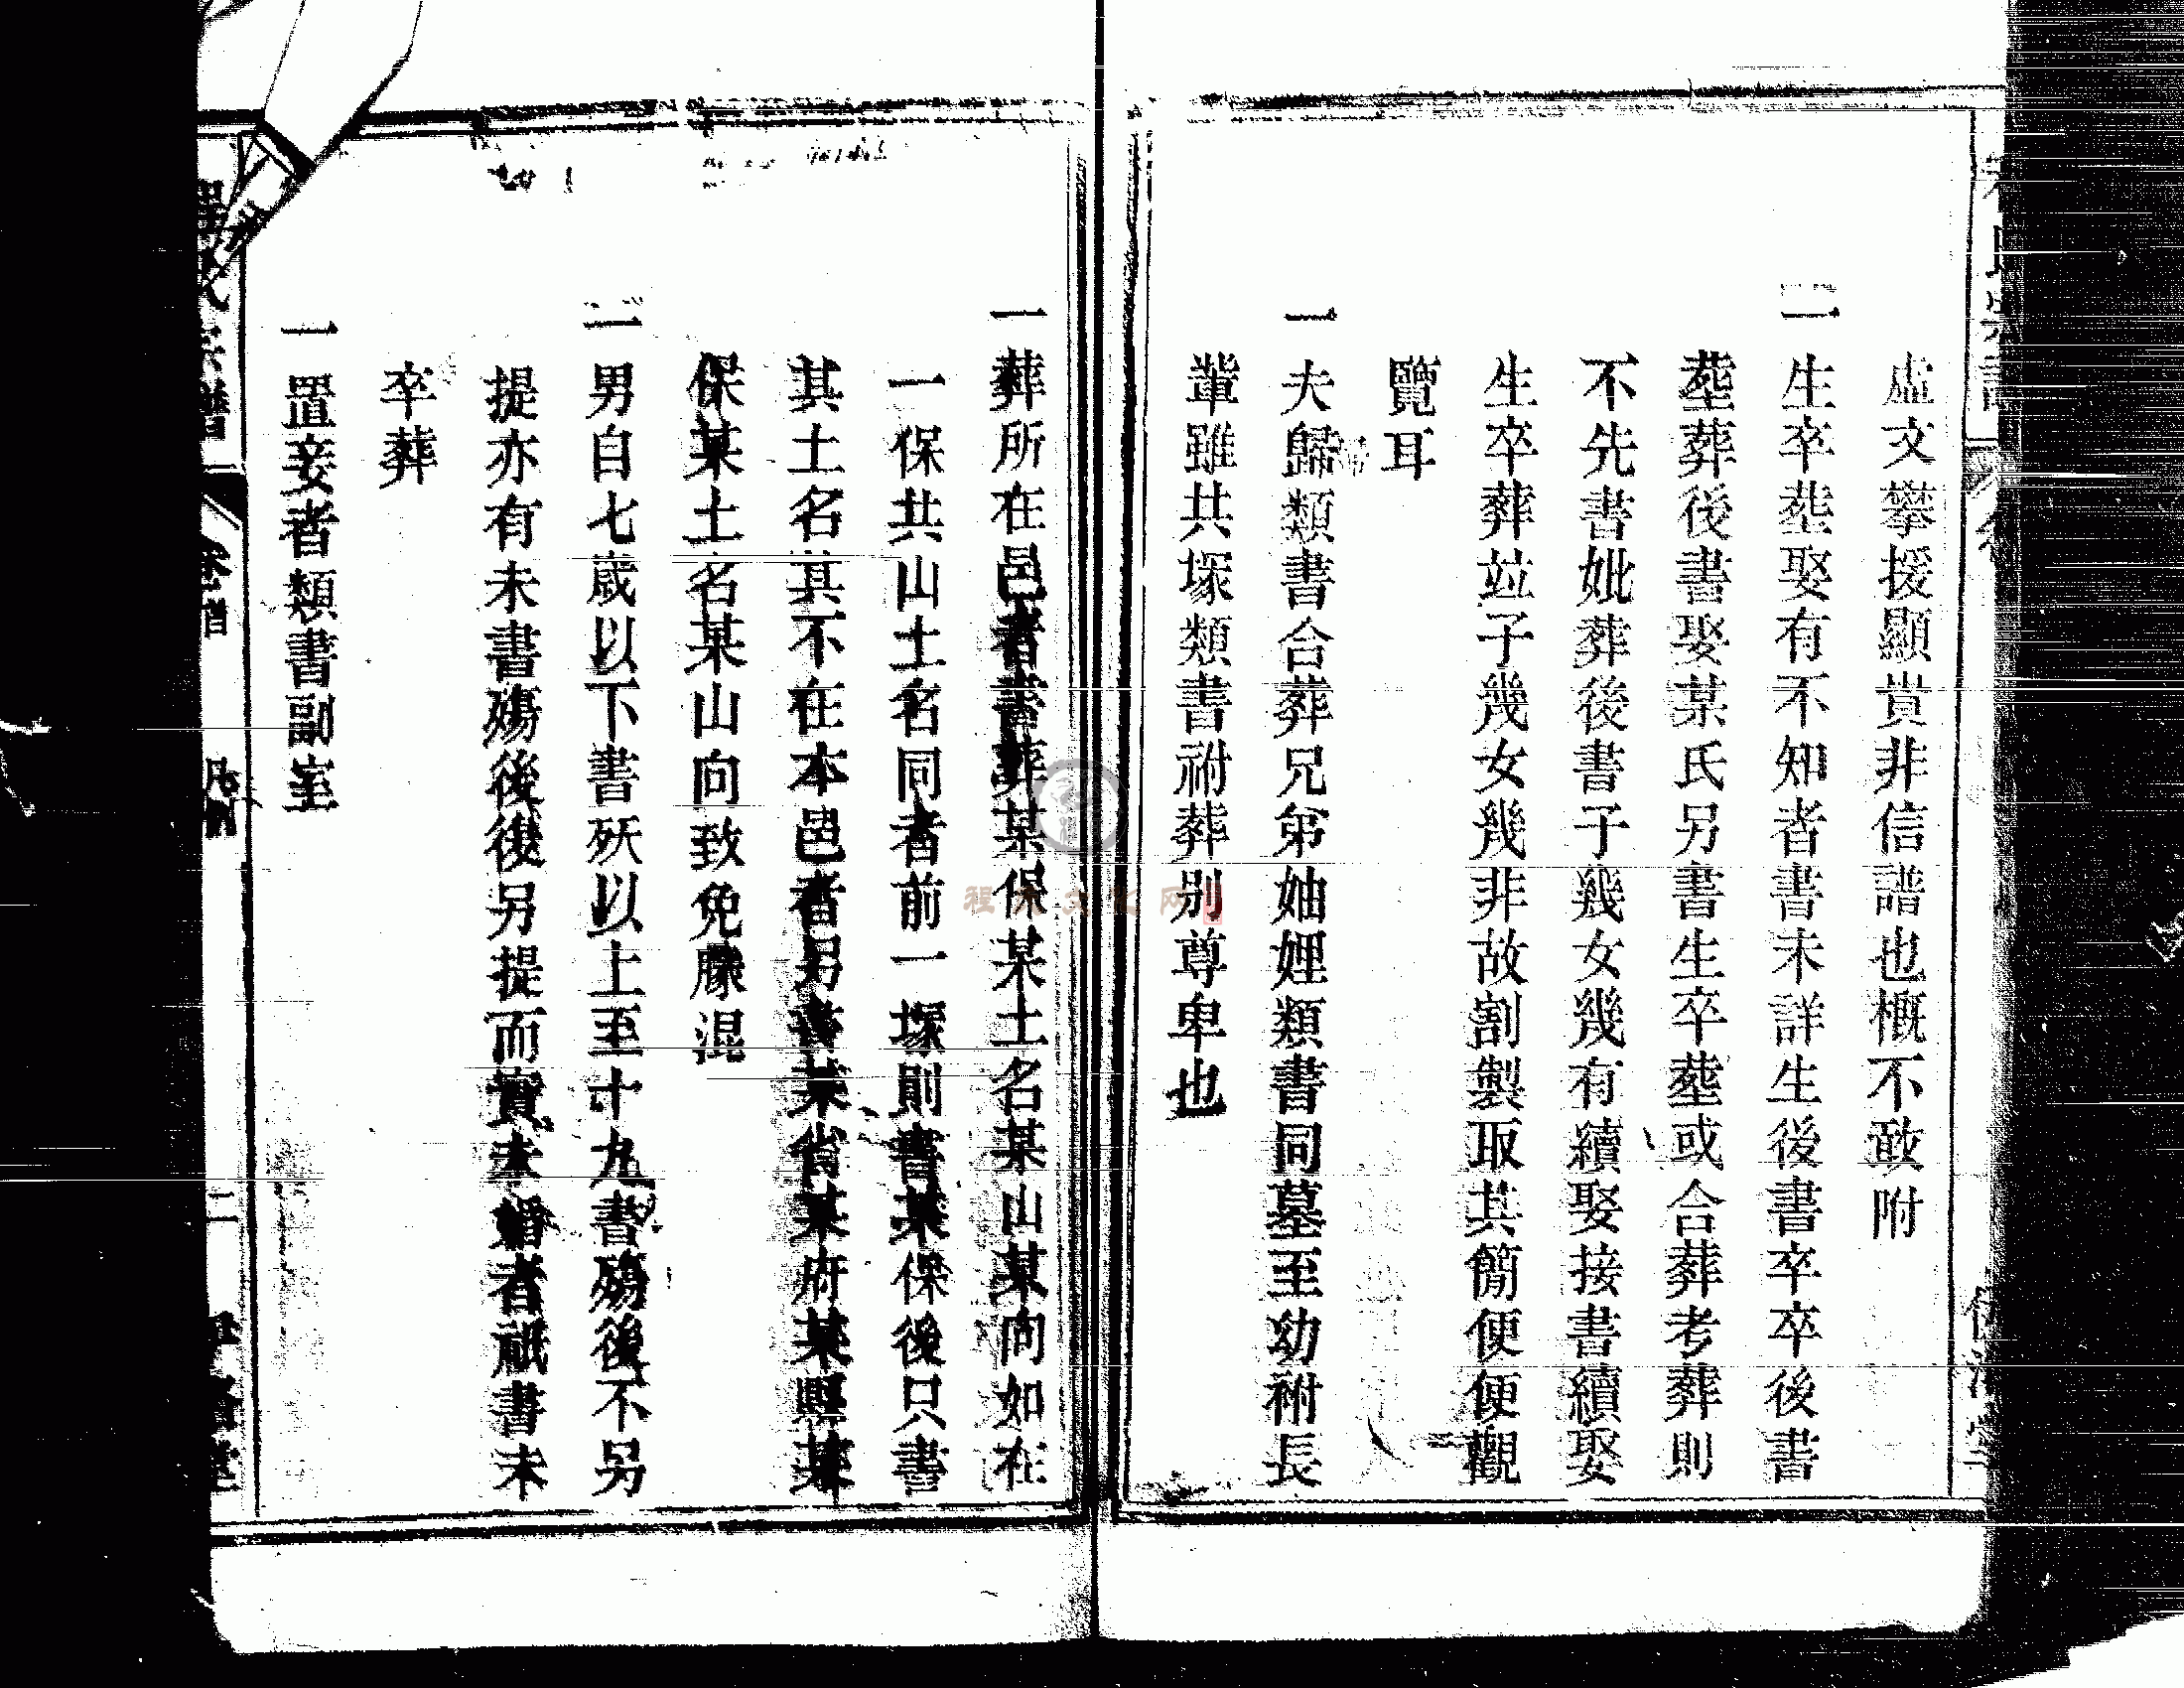 虛文攀援顯貴非信譜也概不敢附
一生卒塟娶有不知者書未詳生後書卒卒後書
塟葬後書娶某氏另書生卒塟或合葬考葬則
不先書妣葬後書子幾女幾有續娶接書續娶
生卒葬竝子幾女幾非故割製取其簡便便觀
覽耳
一夫歸類書合葬兄弟妯娌類書同墓至幼祔長
輩雖共塚類書祔葬別尊卑也
一葬所在邑者書葬某保某土名某山某向如在
一保共山土名同者前一塚則書某保後只書
其土名其不在本邑者另書某省某府某縣某
保某土名某山向致免朦混
一男自七歲以下書殀以上至十九書殤後不另
提亦有未書殤後後另提而實未婚者祇書未
卒葬
一置妾者類書副室
程氏宗譜 卷首 凡例 二
程氏文化网